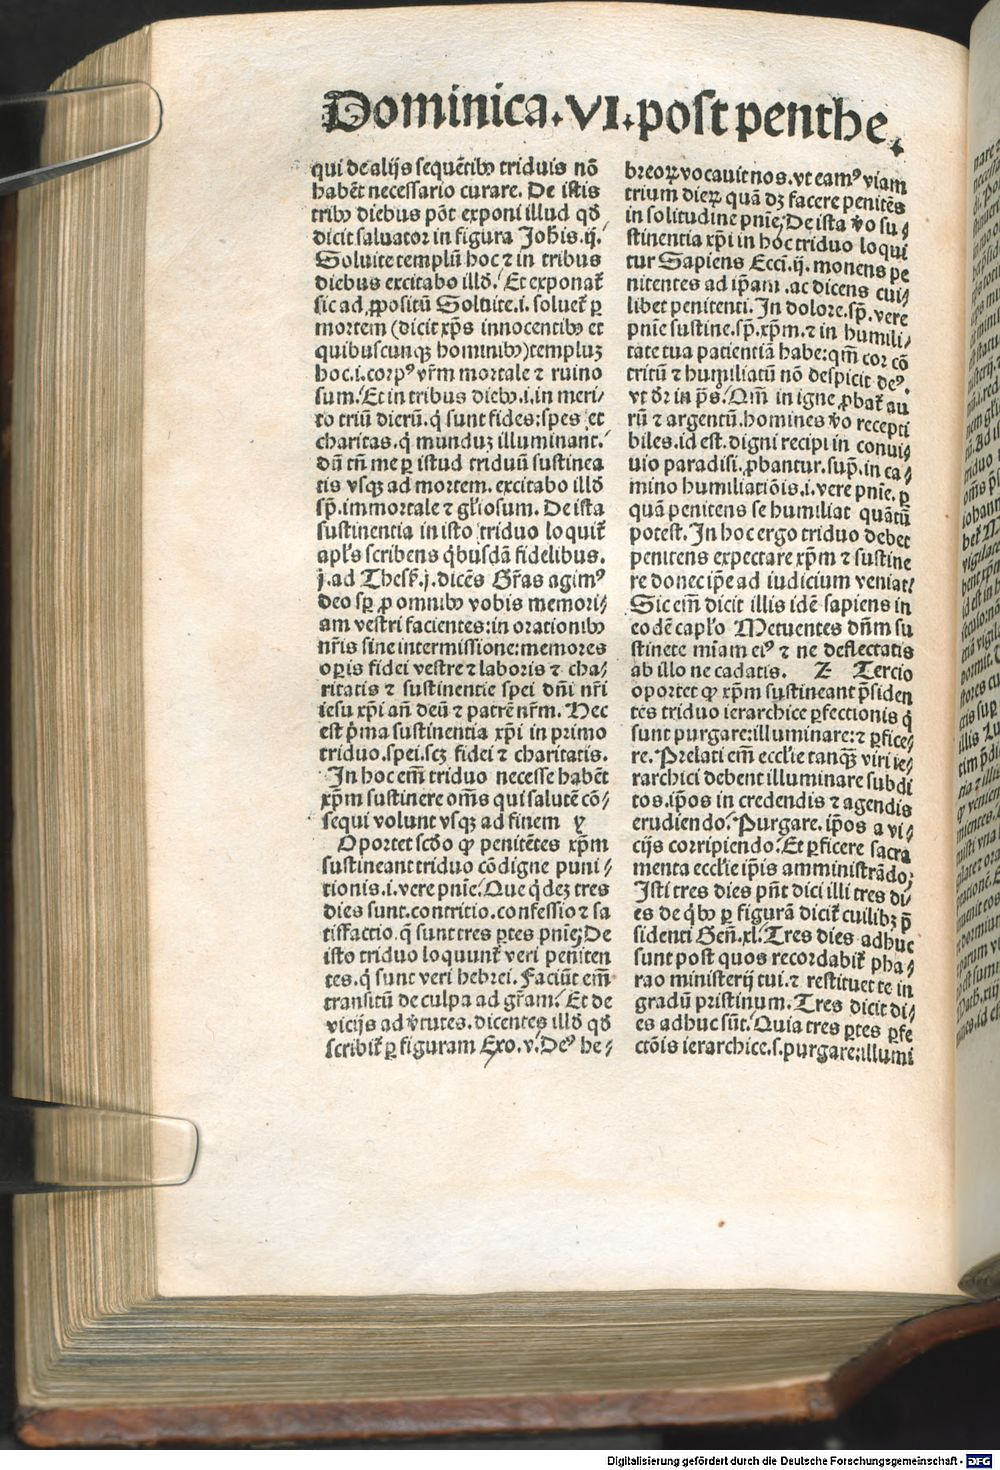 Dominica.VI.post penthe.
qui de alijs sequētibꝰ triduis nō
habēt necessario curare. De istis
tribꝰ diebus pōt exponi illud qđ
dicit saluator in figura Joħis.ij.
Soluite templū hoc ⁊ in tribus
diebus excitabo illđ. Et exponat̄
sic ad ꝓpositū Soluite.i. soluet̄ ꝑ
mortem (dicit xp̄s innocentibꝰ et
quibuscunqꝫ hominibꝰ) templuꝫ
hoc.i.corpꝰ vr̄m mortale ⁊ ruino
sum. Et in tribus diebꝰ.i.in meri⸗
to triū dierū.q̄ sunt fides: spes et
charitas.q̄ munduꝫ illuminant.
dū tn̄ me ꝑ istud triduū sustinea
tis vsqꝫ ad mortem. excitabo illđ
sp̄.immortale ⁊ gl̄iosum. De ista
sustinentia in isto triduo loquit̄
apl̄s scribens q̇busdā fidelibus.
j.ad Thess̄.j.dicēs Gr̄as agimꝰ
deo sp̄ ꝓ omnibꝰ vobis memori⸗
am vestri facientes: in orationibꝰ
nr̄is sine intermissione: memores
oꝑis fidei vestre ⁊ laboris ⁊ cha⸗
ritatis ⁊ sustinentie spei dn̄i nr̄i
iesu xp̄i an̄ deū ⁊ patrē nr̄m. Hec
est p̄ma sustinentia xp̄i in primo
triduo.spei.scꝫ fidei ⁊ charitatis.
In hoc em̄ triduo necesse habēt
xp̄m sustinere om̄s qui salutē cō⸗
sequi volunt vsqꝫ ad finem y
Oportet scđo ꝙ penitētes xp̄m
sustineant triduo cōdigne puni⸗
tionis.i.vere pn̄ie. Que q̇deꝫ tres
dies sunt.contritio.confessio ⁊ sa
tisfactio.q̄ sunt tres ꝑtes pn̄ie; De
isto triduo loquunt̄ veri peniten
tes.q̇ sunt veri hebrei. Faciūt em̄
transitū de culpa ad gr̄am. Et de
vicijs ad v̄tutes. dicentes illđ qđ
scribit̄ ꝑ figuram Exo.v. Deꝰ he⸗
breoꝝ vocauit nos.vt eamꝰ viam
trium dieꝝ quā dꝫ facere penitēs
in solitudine pn̄ie; De ista v̄o su⸗
stinentia xp̄i in hoc triduo loqui
tur Sapiens Ecci̅.ij. monens pe
nitentes ad ip̄am .ac dicens cui⸗
libet penitenti. In dolore.sp̄. vere
pn̄ie sustine.sp̄.xp̄m.⁊ in humili⸗
tate tua patientiā habe: qm̄ cor cō
tritū ⁊ humiliatū nō despicit deꝰ.
vt đr in p̄s. Qm̄ in igne ꝓbat̄ au
rū ⁊ argentū.homines v̄o recepti
biles.id est.digni recipi in conui⸗
uio paradisi.ꝓbantur.sup̄.in ca⸗
mino humiliatiōis.i.vere pn̄ie. ꝑ
quā penitens se humiliat quātū
potest. In hoc ergo triduo debet
penitens expectare xp̄m ⁊ sustine
re donec ip̄e ad iudicium veniat.
Sic em̄ dicit illis idē sapiens in
eodē capl̄o Metuentes dn̄m su
stinete mīam eiꝰ ⁊ ne deflectatis
ab illo ne cadatis. Z Tercio
oportet ꝙ xp̄m sustineant p̄siden
tes triduo ierarchice ꝑfectionis q̄
sunt purgare: illuminare: ⁊ ꝑfice⸗
re. Prelati em̄ eccl̄ie tanqꝫ viri ie⸗
rarchici debent illuminare subdi
tos.ip̄os in credendis ⁊ agendis
erudiendo. Purgare.ip̄os a vi⸗
cijs corripiendo. Et ꝑficere sacra
menta eccl̄ie ip̄is amministrādo;
Isti tres dies pn̄t dici illi tres di⸗
es de q̇bꝰ ꝑ figurā dicit̄ cuilibꝫ p̄
sidenti Gen̄.xl. Tres dies adhuc
sunt post quos recordabit̄ pha⸗
rao ministerij tui.⁊ restituet te in
gradū pristinum. Tres dicit di⸗
es adhuc sūt. Quia tres ꝑtes ꝑfe
ctōis ierarchice.s.purgare: illumi
Digitalisierung gefördert durch die Deutsche Forschungsgemeinschaft - DFG